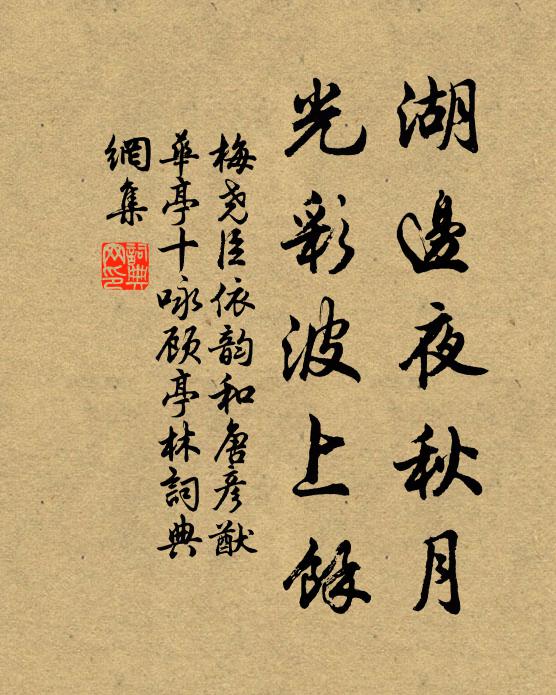 湖邊夜秋月
光彩波上餘
梅堯臣依韵和唐彦猷
華亭十咏顾亭林詞典
網集
詞典網印